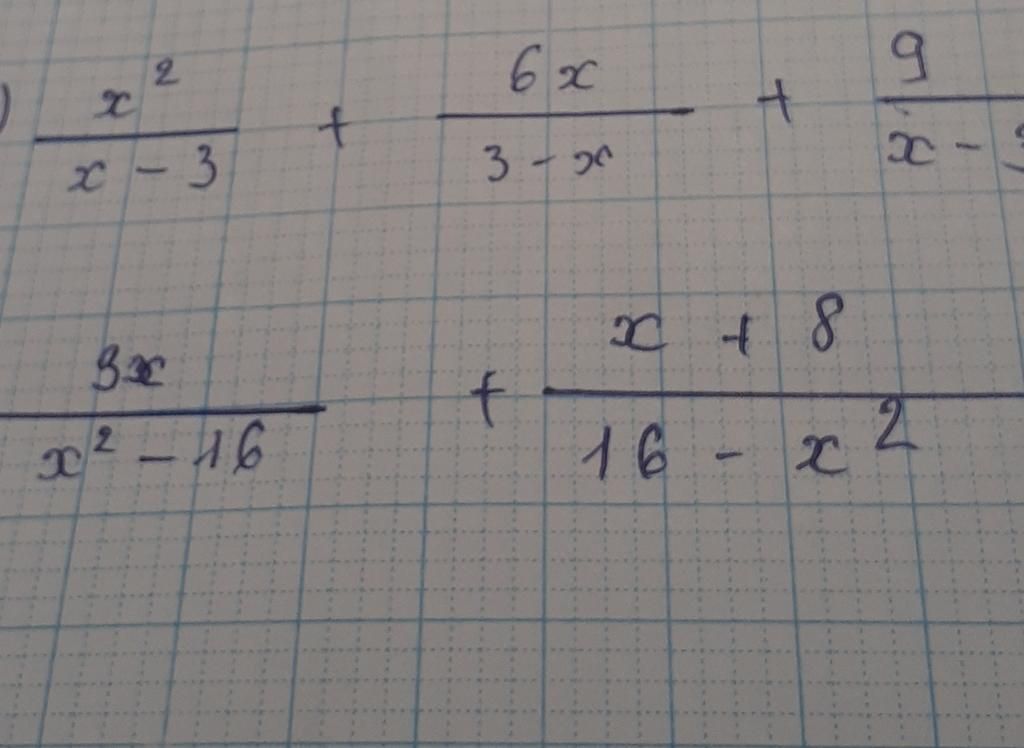 ) x² / (x - 3) + 6x / (3 - x) + 9 / (x - 3
3x / (x² - 16) + (x + 8) / (16 - x²)